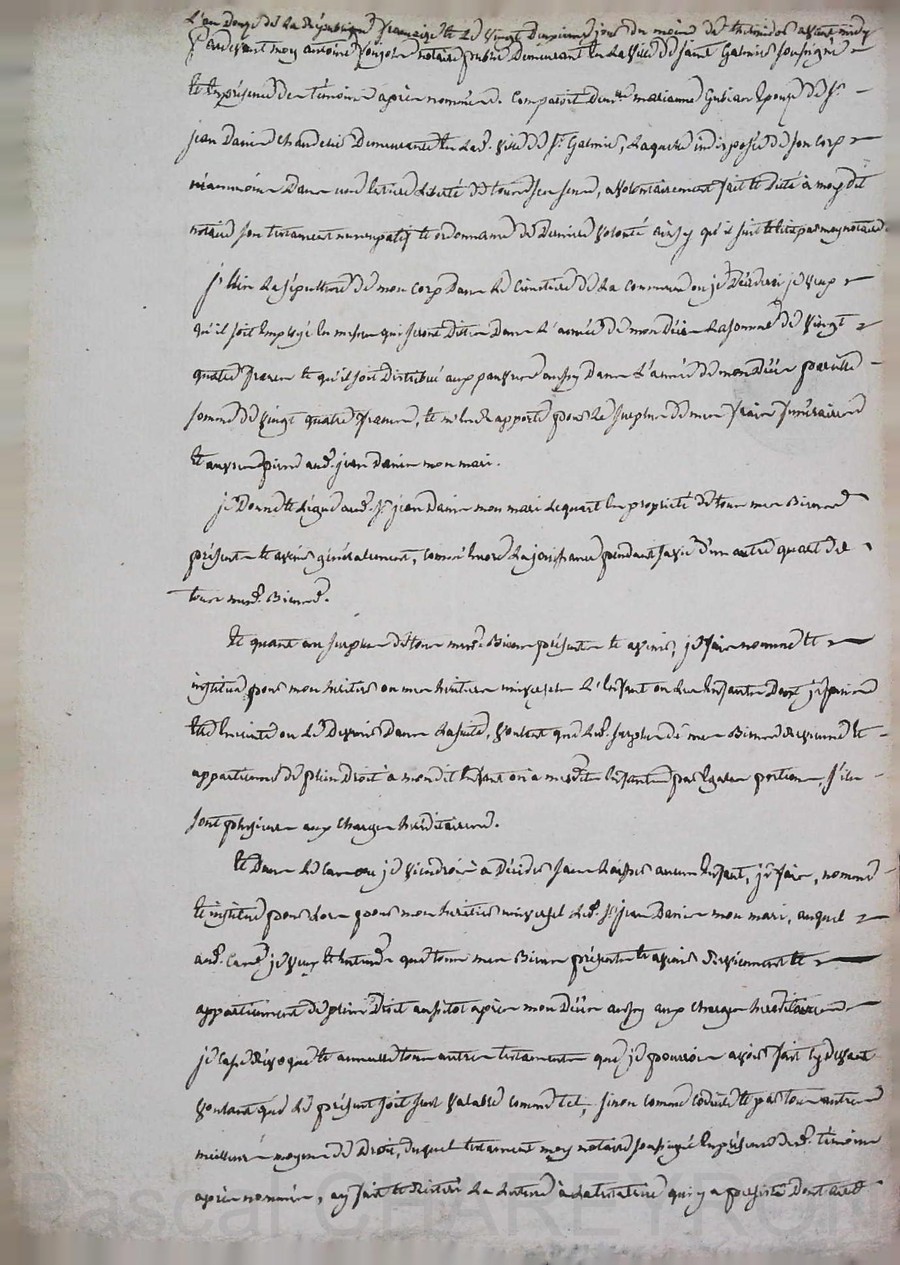 L'an douze de la République française et le vingt deuxieme jour du mois de thermidor avant midy
Pardevant moy antoine notaire public demeurant en la ville de saint Galmier soussigné
et en présence des témoins après nommés. Comparoit dem.lle marianne Gubian épouze de Sr
jean Danier chandelié demeurante en lad. ville de St Galmier, laquelle indisposée de son corp
néanmoins dans une entière liberté de tous ses sens, a volontairement fait et dicté à moy dit
notaire son testament nuncupatif et ordonnance de dernière volonté ainsy qu'il suit et écrit par moy notaire.
J'élis la sépulture de mon corp dans le cimetière de la commune ou je décéderai je veux
qu'il soit employé en messes qui seront dites dans l'année de mon décès la somme de vingt
quatre francs et qu'il soit distribué aux pauvres aussy dans l'année de mon décès pareille
somme de vingt quatre francs, et m'en rapporte pour le surplus de mes frais funéraires
et œuvres pies aud. jean Danier mon mari.
je donne et lègue aud. Sr jean Danier mon mari le quart en propriété de tous mes Biens
présents et avenir généralement, comme encore la jouissance pendant sa vie d'un autre quart de
tous mesd. Biens.
Et quant au surplus de tous mesd. Biens présents et avenir, je fais nomme et
institue pour mon héritier ou mes héritiers universels l'enfant ou les enfants dont je puis
etre enceinte ou le devenir dans la suite, voulant que led. surplus de mes Biens revienne et
appartienne de plein Droit à mondit enfant ou à mesdits enfants par égales portions, s'ils
sont plusieurs aux charges héréditaires.
Et dans le cas ou je viendrois à décéder sans laisser aucun enfant, je fais, nomme
et institue pour lors pour mon héritier universel led. Sr jean Danier mon mari, auquel
aud. cas je veux et entends que tous mes Biens présents et avenir reviennent et
appartiennent de plein Droit aussitot après mon décès aussy aux charges héréditaires
je casse révoque et annulle tous autres testaments que je pourrois avoir fait cy devant
voulant que le présent soit seul valable comme tel, sinon comme codicile et par tous autres
meilleurs moyens de Droit, duquel testament moy notaire soussigné en présence desd. témoins
après nommés, ay fait et réitéré la lecture à la testatrice qui y a persisté Dont acte
Pascal CHAREYRON